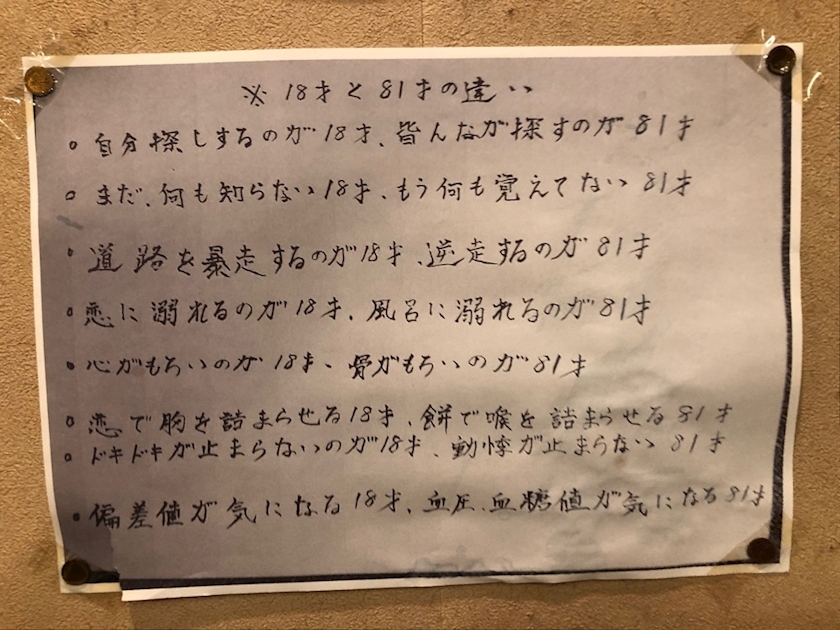 ※ 18才と81才の違い
○ 自分探しするのが18才、皆んなが探すのが81才
○ まだ、何も知らない18才、もう何も覚えてない81才
○ 道路を暴走するのが18才、逆走するのが81才
○ 恋に溺れるのが18才、風呂に溺れるのが81才
○ 心がもろいのが18才、骨がもろいのが81才
○ 恋で胸を詰まらせる18才、餅で喉を詰まらせる81才
○ ドキドキが止まらないのが18才、動悸が止まらない81才
○ 偏差値が気になる18才、血圧、血糖値が気になる81才